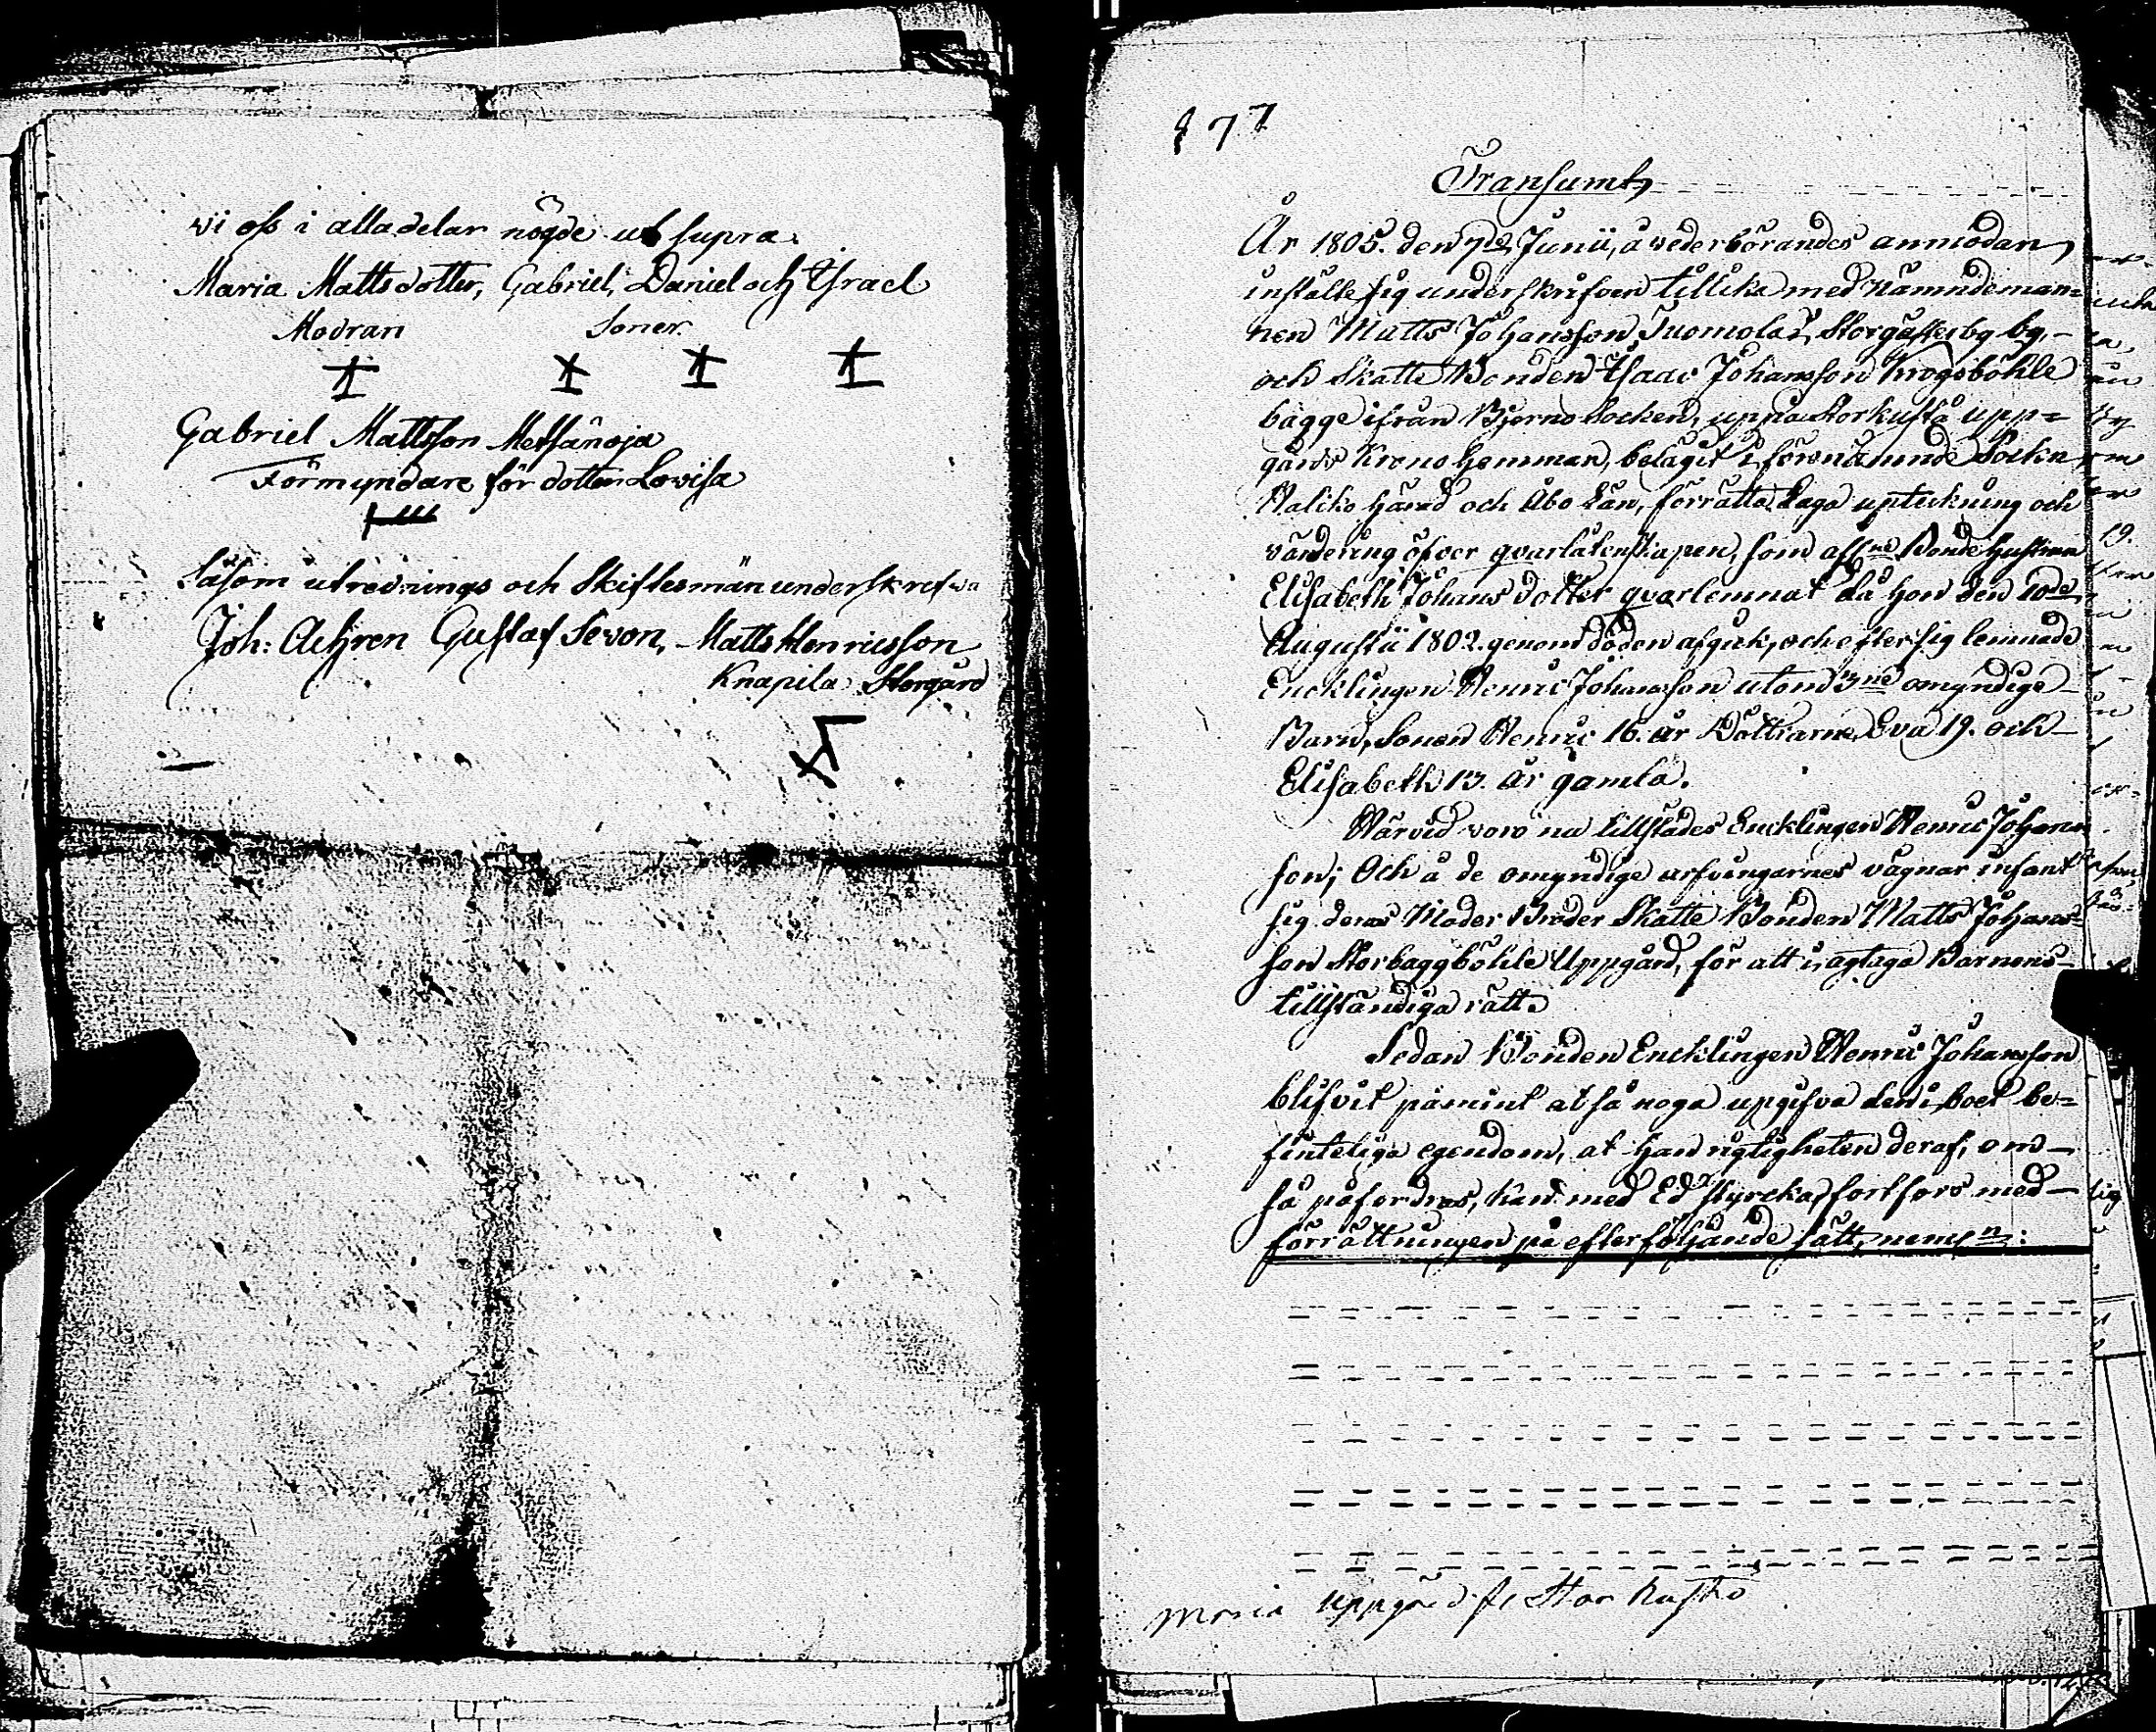 wi oss i alla delar nögde ut supra.
Maria Mattsdotter, Gabriel, Daniel och Israel
Modran Söner
Gabriel Mattsson Metsänoja
Förmyndare för dottern Lovisa
Såsom utrednings och Skiftesmän underskrefwa
Joh: Achren Gustaf Sevon, Matts Henricsson
Knapila Storgård
177
Transumt,
År 1805. den 7de Junii, å wederbörandes anmodan,
instälte sig underskrifven tillika med nämndeman=
nen Matts Johansson Tuomola i Storgåsseby by,
och Skatte Bonden Isaac Johansson Krogsböhle
bägge ifrån Bjerno Socken, uppå Storkusto upp=
gårds Krono hemman, belägit i förenämnde Sockn
Haliko härad och Åbo Län, förrätta Laga uptekning och
värdering öfver qvarlåtenskapen, som afl:ne Bonde hustrun
Elisabeth Johans dotter qvarlemnat då hon den 10de
Augustii 1802. genom döden afgick, och efter sig lemnade
Encklingen Henric Johansson utom 3ne omyndige
Barn, Sonen Henric 16. år Döttrarne Eva 19. och
Elisabeth 13. år gamla.
Härvid voro nu tillstädes Encklingen Henric Johans
son; Och å de omyndige arfvingarnes vägnar infant
sig deras Moder Broder Skatte Bonden Matts Johans=
son Storbaggböhle Uppgård, för att i, agtaga Barnens
tillständiga rätt.
Sedan Bonden Encklingen Henric Johansson
blifvit påmint at så noga upgifva den i boet be=
finteliga egendom, at han rigtigheten deraf, om
så påfordras, kan med Ed styrcka, fortfors med
förrättningen på efterföljande sätt, neml:n:
Uppgård fr Stor Kusto